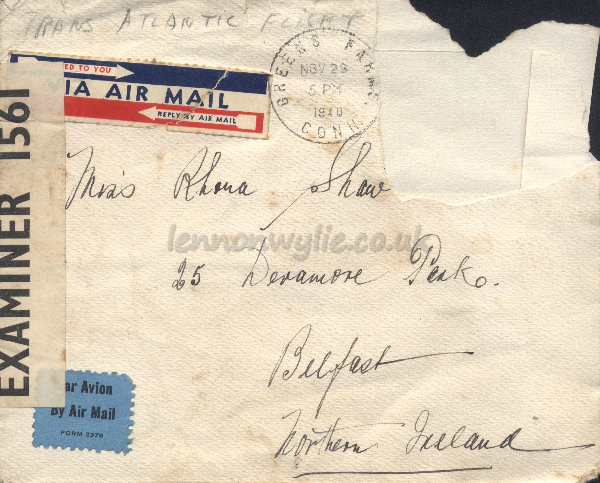 TRANS ATLANTIC FLIGHT
ED TO YOU
IA AIR MAIL
REPLY BY AIR MAIL
GREENS FARMS
NOV 29
5 PM
1940
CONN
EXAMINER 1561
Miss Rhona Shaw
lennonwylie.co.uk
25 Deramore Park.
Belfast
Northern Ireland
ar Avion
By Air Mail
FORM 2978